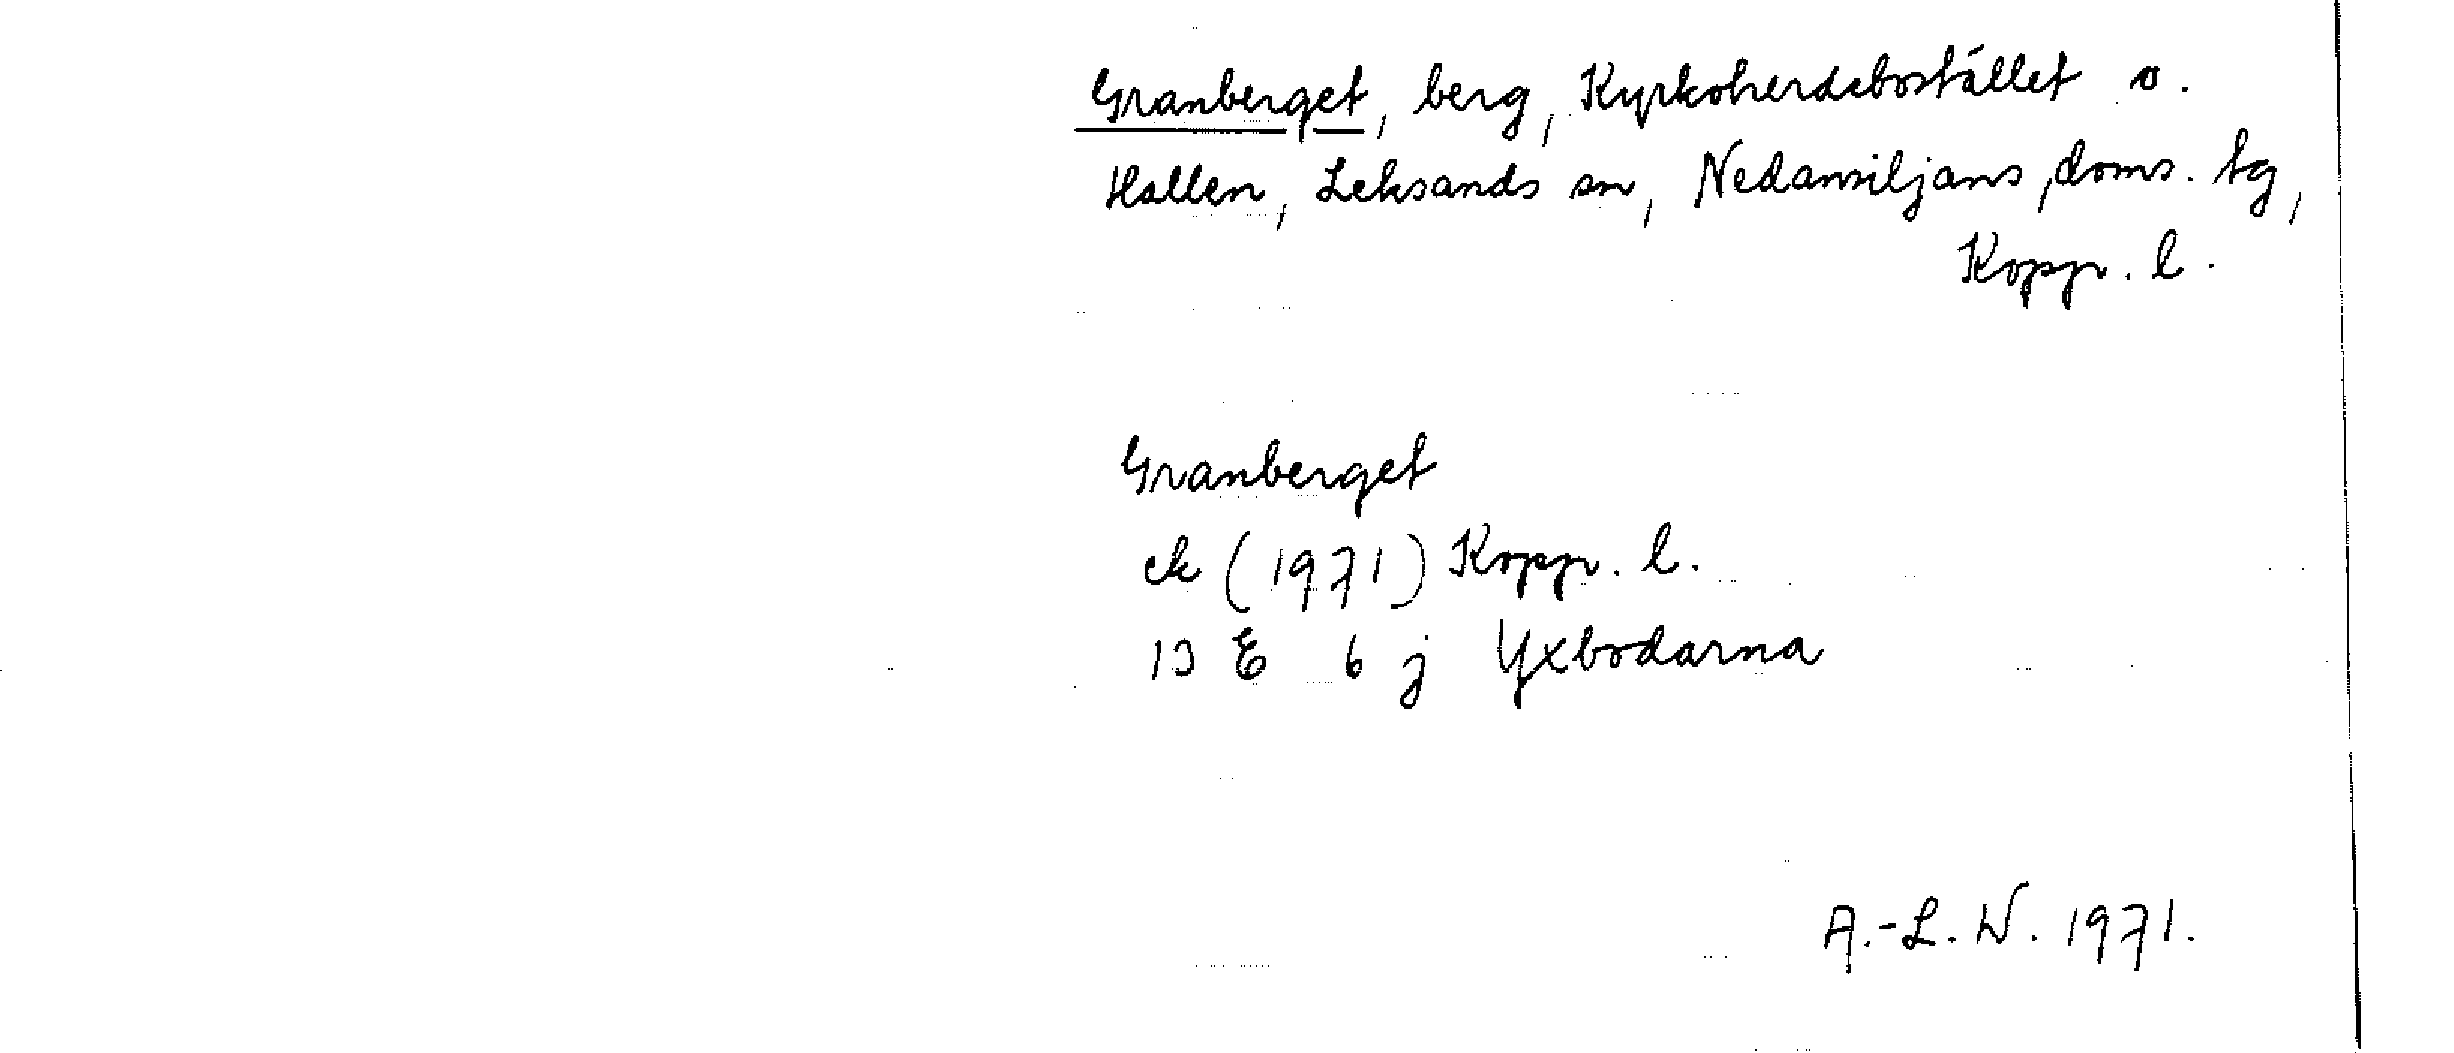 Granberget, berg, Kyrkoherdebostället o.
Hallen, Leksands sn, Nedansiljans doms. tg,
Kopp. l.
Granberget
ek (1971) Kopp. l.
13 E 6 j Yxbodarna
A.-L. W. 1971.